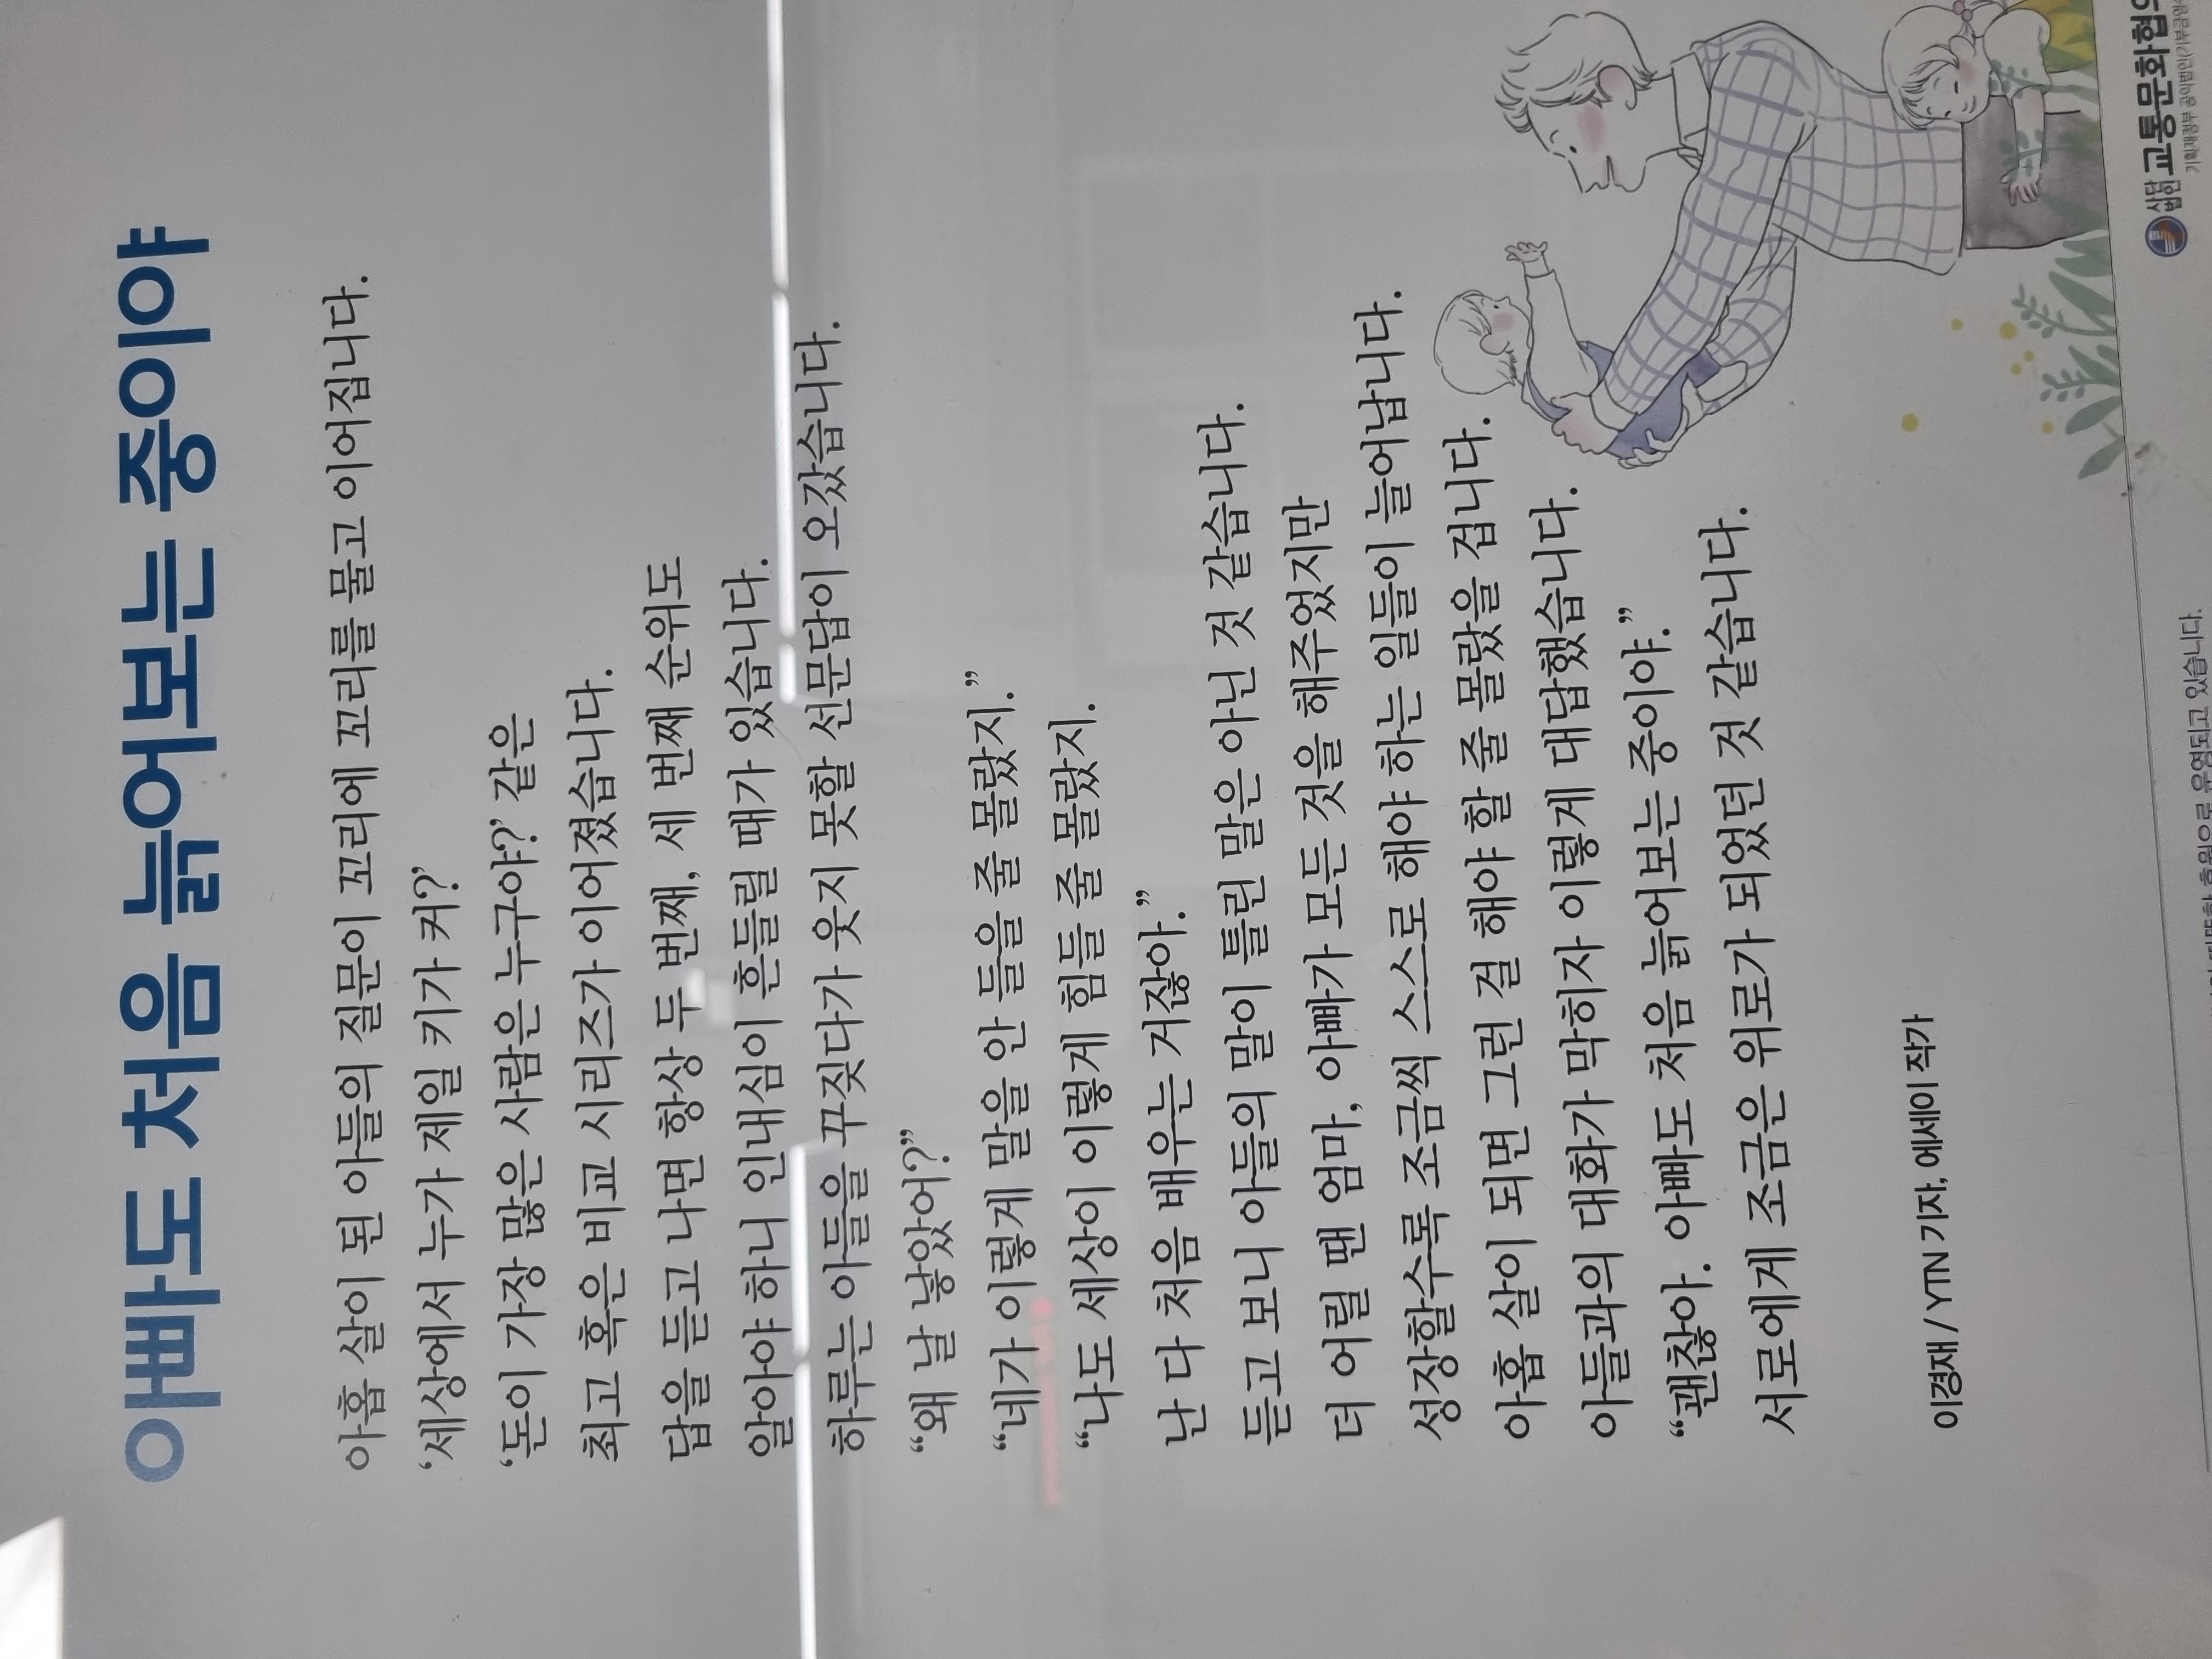 아빠도 처음 늙어보는 중이야
아홉 살이 된 아들의 질문이 꼬리에 꼬리를 물고 이어집니다.
‘세상에서 누가 제일 키가 커?’
‘돈이 가장 많은 사람은 누구야?’ 같은
최고 혹은 비교 시리즈가 이어졌습니다.
답을 듣고 나면 항상 두 번째, 세 번째 순위도
알아야 하니 인내심이 흔들릴 때가 있습니다.
하루는 아들을 꾸짖다가 웃지 못할 선문답이 오갔습니다.
“왜 날 낳았어?”
“네가 이렇게 말을 안 들을 줄 몰랐지.”
“나도 세상이 이렇게 힘들 줄 몰랐지.
난 다 처음 배우는 거잖아.”
듣고 보니 아들의 말이 틀린 말은 아닌 것 같습니다.
더 어릴 땐 엄마, 아빠가 모든 것을 해주었지만
성장할수록 조금씩 스스로 해야 하는 일들이 늘어납니다.
아홉 살이 되면 그런 걸 해야 할 줄 몰랐을 겁니다.
아들과의 대화가 막히자 이렇게 대답했습니다.
“괜찮아. 아빠도 처음 늙어보는 중이야.”
서로에게 조금은 위로가 되었던 것 같습니다.
이경재 / YTN 기자, 에세이 작가
사단법인 교통문화협의
기획재정부 공익법인(기부금영
후원으로 운영되고 있습니다.